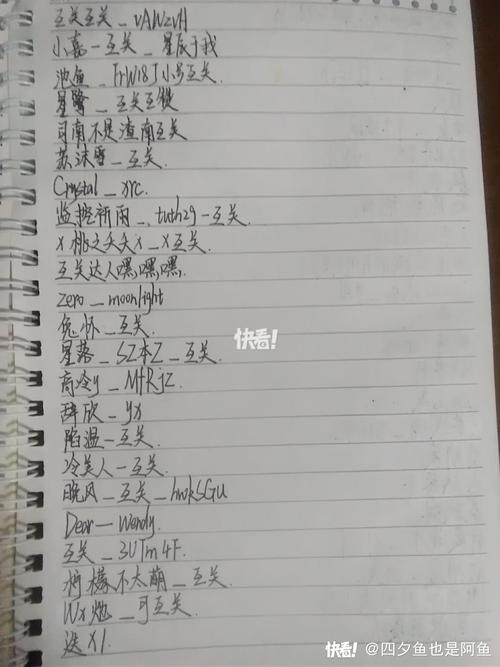 互关互关_vAWzvH
小嘉一互关_星辰于我
池鱼_TrW18T小号互关
星鹭_互关互赞
司南不是渣南互关
苏沫雪_互关.
Crystal_xrc.
监控祈雨_.tuth29-互关
x桃之夭夭x_x互关.
互关达人嘿嘿嘿.
zero_moonlight
兔怀_互关.
星落_SZ本Z_互关.
高冷y_MfRjZ
辞欣_yx
陷温一互关.
冷美人一互关.
晚风_互关_hwkSGU
Dear—Wendy.
互关_3UTm4F.
柠檬不太萌_互关.
Wx灺_可互关.
迭X1.
快看!
快看! @四夕鱼也是阿鱼